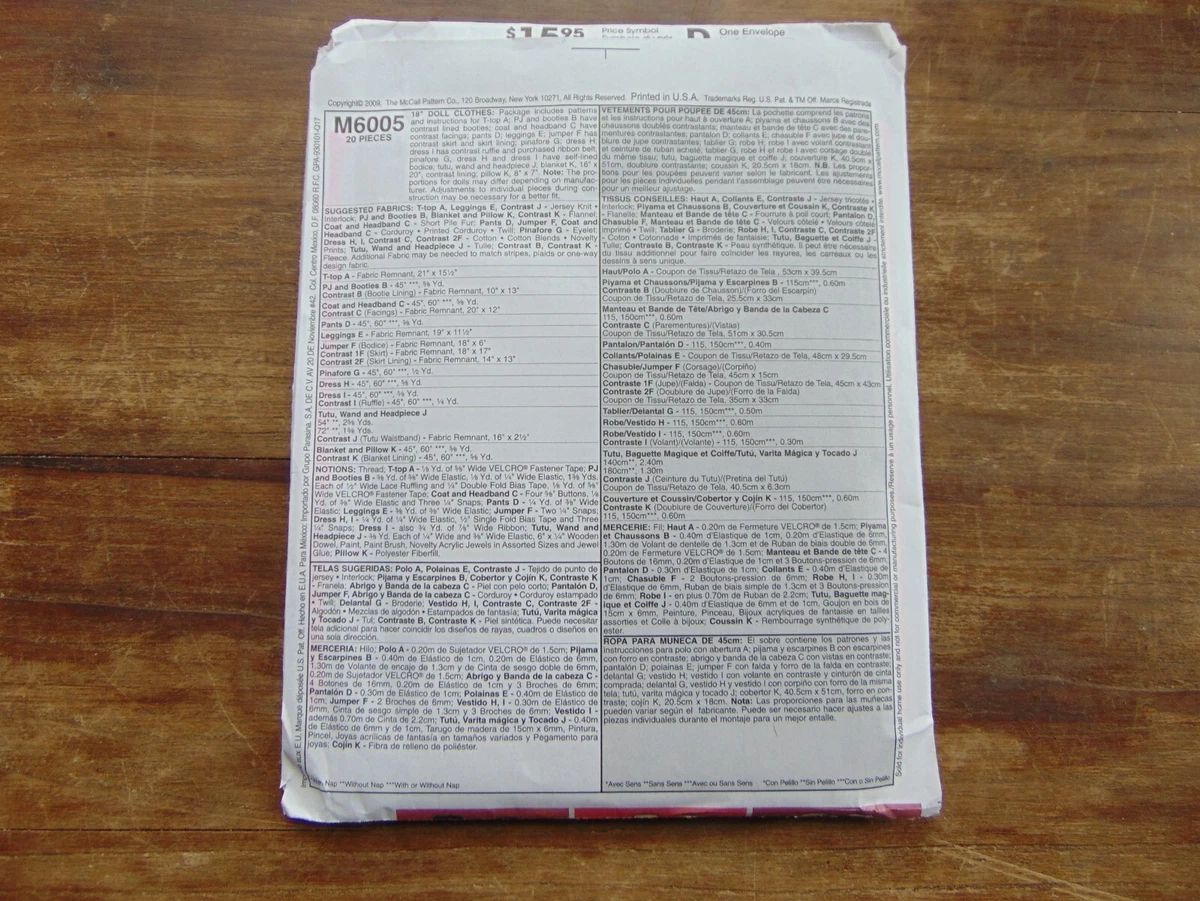 $15.95 Price Symbol D One Envelope
Copyright© 2009, The McCall Pattern Co., 120 Broadway, New York 10271, All Rights Reserved. Printed in U.S.A. Trademarks Reg. U.S. Pat. & TM Off. Marca Registrada
M6005
20 PIECES
18" DOLL CLOTHES: Package includes patterns
and instructions for T-top A; PJ and booties B have
contrast lined booties; coat and headband C have
contrast facings; pants D; leggings E; jumper F has
contrast skirt and skirt lining; pinafore G; dress H;
dress I has contrast ruffle and purchased ribbon belt;
pinafore G, dress H and dress I have self-lined
bodice; tutu, wand and headpiece J; blanket K, 16" x
20", contrast lining; pillow K, 8" x 7". Note: The pro-
portions for dolls may differ depending on manufac-
turer. Adjustments to individual pieces during con-
struction may be necessary for a better fit.
SUGGESTED FABRICS: T-top A, Leggings E, Contrast J - Jersey Knit •
Interlock; PJ and Booties B, Blanket and Pillow K, Contrast K - Flannel;
Coat and Headband C - Short Pile Fur; Pants D, Jumper F, Coat and
Headband C - Corduroy • Printed Corduroy • Twill; Pinafore G - Eyelet;
Dress H, I, Contrast C, Contrast 2F - Cotton • Cotton Blends • Novelty
Prints; Tutu, Wand and Headpiece J - Tulle; Contrast B, Contrast K -
Fleece. Additional Fabric may be needed to match stripes, plaids or one-way
design fabric.
T-top A - Fabric Remnant, 21" x 15½"
PJ and Booties B - 45", ⅝ Yd.
Contrast B (Bootie Lining) - Fabric Remnant, 10" x 13"
Coat and Headband C - 45", 60" ***, ⅝ Yd.
Contrast C (Facings) - Fabric Remnant, 20" x 12"
Pants D - 45", 60" ***, ⅜ Yd.
Leggings E - Fabric Remnant, 19" x 11½"
Jumper F (Bodice) - Fabric Remnant, 18" x 6"
Contrast 1F (Skirt) - Fabric Remnant, 18" x 17"
Contrast 2F (Skirt Lining) - Fabric Remnant, 14" x 13"
Pinafore G - 45", 60" ***, ½ Yd.
Dress H - 45", 60" ***, ⅝ Yd.
Dress I - 45", 60" ***, ⅝ Yd.
Contrast I (Ruffle) - 45", 60" ***, ¼ Yd.
Tutu, Wand and Headpiece J
54" **, 2⅝ Yds.
72" **, 1⅜ Yds.
Contrast J (Tutu Waistband) - Fabric Remnant, 16" x 2½"
Blanket and Pillow K - 45", 60" ***, ⅝ Yd.
Contrast K (Blanket Lining) - 45", 60" ***, ⅝ Yd.
NOTIONS: Thread; T-top A - ⅛ Yd. of ⅝" Wide VELCRO® Fastener Tape; PJ
and Booties B - ⅜ Yd. of ⅜" Wide Elastic, ⅛ Yd. of ¼" Wide Elastic, 1⅜ Yds.
Each of ½" Wide Lace Ruffling and ¼" Double Fold Bias Tape, ⅛ Yd. of ⅝"
Wide VELCRO® Fastener Tape; Coat and Headband C - Four ⅝" Buttons, ⅛
Yd. of ⅜" Wide Elastic and Three ¼" Snaps; Pants D - ¼ Yd. of ⅜" Wide
Elastic; Leggings E - ⅜ Yd. of ⅜" Wide Elastic; Jumper F - Two ¼" Snaps;
Dress H, I - ¼ Yd. of ¼" Wide Elastic, ½" Single Fold Bias Tape and Three
¼" Snaps; Dress I - also ¾ Yd. of ⅞" Wide Ribbon; Tutu, Wand and
Headpiece J - ⅜ Yd. Each of ¼" Wide and ⅜" Wide Elastic, 6" x ¼" Wooden
Dowel, Paint, Paint Brush, Novelty Acrylic Jewels in Assorted Sizes and Jewel
Glue; Pillow K - Polyester Fiberfill.
TELAS SUGERIDAS: Polo A, Polainas E, Contraste J - Tejido de punto de
jersey • Interlock; Pijama y Escarpines B, Cobertor y Cojín K, Contraste K
- Franela; Abrigo y Banda de la cabeza C - Piel con pelo corto; Pantalón D,
Jumper F, Abrigo y Banda de la cabeza C - Corduroy • Corduroy estampado
• Twill; Delantal G - Broderie; Vestido H, I, Contraste C, Contraste 2F -
Algodón • Mezclas de algodón • Estampados de fantasía; Tutú, Varita mágica
y Tocado J - Tul; Contraste B, Contraste K - Piel sintética. Puede necesitar
tela adicional para hacer coincidir los diseños de rayas, cuadros o diseños en
una sola dirección.
MERCERIA: Hilo; Polo A - 0.20m de Sujetador VELCRO® de 1.5cm; Pijama
y Escarpines B - 0.40m de Elástico de 1cm, 0.20m de Elástico de 6mm,
1.30m de Volante de encaje de 1.3cm y de Cinta de sesgo doble de 6mm,
0.20m de Sujetador VELCRO® de 1.5cm; Abrigo y Banda de la cabeza C -
4 Botones de 16mm, 0.20m de Elástico de 1cm y 3 Broches de 6mm;
Pantalón D - 0.30m de Elástico de 1cm; Polainas E - 0.40m de Elástico de
1cm; Jumper F - 2 Broches de 6mm; Vestido H, I - 0.30m de Elástico de
6mm, Cinta de sesgo simple de 1.3cm y 3 Broches de 6mm; Vestido I -
además 0.70m de Cinta de 2.2cm; Tutú, Varita mágica y Tocado J - 0.40m
de Elástico de 6mm y de 1cm, Tarugo de madera de 15cm x 6mm, Pintura,
Pincel, Joyas acrílicas de fantasía en tamaños variados y Pegamento para
joyas; Cojín K - Fibra de relleno de poliéster.
Nap **Without Nap ***With or Without Nap
VETEMENTS POUR POUPEE DE 45cm: La pochette comprend les patrons
et les instructions pour haut à ouverture A; piyama et chaussons B avec des
chaussons doublés contrastants; manteau et bande de tête C avec des pare-
mentures contrastantes; pantalon D; collants E; chasuble F avec jupe et dou-
blure de jupe contrastantes; tablier G; robe H; robe I avec volant contrastant
et ceinture de ruban acheté; tablier G, robe H et robe I avec corsage doublé
du même tissu; tutu, baguette magique et coiffe J; couverture K, 40.5cm x
51cm, doublure contrastante; coussin K, 20.5cm x 18cm. N.B. Les propor-
tions pour les poupées peuvent varier selon le fabricant. Les ajustements
pour les pièces individuelles pendant l'assemblage peuvent être nécessaires
pour un meilleur ajustage.
TISSUS CONSEILLES: Haut A, Collants E, Contraste J - Jersey tricotés •
Interlock; Piyama et Chaussons B, Couverture et Coussin K, Contraste K
- Flanelle; Manteau et Bande de tête C - Fourrure à poil court; Pantalon D,
Chasuble F, Manteau et Bande de tête C - Velours côtelé • Velours côtelé
imprimé • Twill; Tablier G - Broderie; Robe H, I, Contraste C, Contraste 2F
- Coton • Cotonnade • Imprimés de fantaisie; Tutu, Baguette et Coiffe J -
Tulle; Contraste B, Contraste K - Peau synthétique. Il peut être nécessaire
du tissu additionnel pour faire coïncider les rayures, les carreaux ou les
dessins à sens unique.
Haut/Polo A - Coupon de Tissu/Retazo de Tela , 53cm x 39.5cm
Piyama et Chaussons/Pijama y Escarpines B - 115cm***, 0.60m
Contraste B (Doublure de Chausson)/(Forro del Escarpín)
Coupon de Tissu/Retazo de Tela, 25.5cm x 33cm
Manteau et Bande de Tête/Abrigo y Banda de la Cabeza C
115, 150cm***, 0.60m
Contraste C (Parementures)/(Vistas)
Coupon de Tissu/Retazo de Tela, 51cm x 30.5cm
Pantalon/Pantalón D - 115, 150cm***, 0.40m
Collants/Polainas E - Coupon de Tissu/Retazo de Tela, 48cm x 29.5cm
Chasuble/Jumper F (Corsage)/(Corpiño)
Coupon de Tissu/Retazo de Tela, 45cm x 15cm
Contraste 1F (Jupe)/(Falda) - Coupon de Tissu/Retazo de Tela, 45cm x 43cm
Contraste 2F (Doublure de Jupe)/(Forro de la Falda)
Coupon de Tissu/Retazo de Tela, 35cm x 33cm
Tablier/Delantal G - 115, 150cm***, 0.50m
Robe/Vestido H - 115, 150cm***, 0.60m
Robe/Vestido I - 115, 150cm***, 0.60m
Contraste I (Volant)/(Volante) - 115, 150cm***, 0.30m
Tutu, Baguette Magique et Coiffe/Tutú, Varita Mágica y Tocado J
140cm**, 2.40m
180cm**, 1.30m
Contraste J (Ceinture du Tutu)/(Pretina del Tutú)
Coupon de Tissu/Retazo de Tela, 40.5cm x 6.3cm
Couverture et Coussin/Cobertor y Cojín K - 115, 150cm***, 0.60m
Contraste K (Doublure de Couverture)/(Forro del Cobertor)
115, 150cm***, 0.60m
MERCERIE: Fil; Haut A - 0.20m de Fermeture VELCRO® de 1.5cm; Piyama
et Chaussons B - 0.40m d'Elastique de 1cm, 0.20m d'Elastique de 6mm,
1.30m de Volant de dentelle de 1.3cm et de Ruban de biais double de 6mm,
0.20m de Fermeture VELCRO® de 1.5cm; Manteau et Bande de tête C - 4
Boutons de 16mm, 0.20m d'Elastique de 1cm et 3 Boutons-pression de 6mm;
Pantalon D - 0.30m d'Elastique de 1cm; Collants E - 0.40m d'Elastique de
1cm; Chasuble F - 2 Boutons-pression de 6mm; Robe H, I - 0.30m
d'Elastique de 6mm, Ruban de biais simple de 1.3cm et 3 Boutons-pression
de 6mm; Robe I - en plus 0.70m de Ruban de 2.2cm; Tutu, Baguette mag-
ique et Coiffe J - 0.40m d'Elastique de 6mm et de 1cm, Goujon en bois de
15cm x 6mm, Peinture, Pinceau, Bijoux acryliques de fantaisie en tailles
assorties et Colle à bijoux; Coussin K - Rembourrage synthétique de poly-
ester.
ROPA PARA MUNECA DE 45cm: El sobre contiene los patrones y las
instrucciones para polo con abertura A; pijama y escarpines B con escarpines
con forro en contraste; abrigo y banda de la cabeza C con vistas en contraste;
pantalón D; polainas E; jumper F con falda y forro de la falda en contraste;
delantal G; vestido H; vestido I con volante en contraste y cinturón de cinta
comprada; delantal G, vestido H y vestido I con corpiño con forro de la misma
tela; tutú, varita mágica y tocado J; cobertor K, 40.5cm x 51cm, forro en con-
traste; cojín K, 20.5cm x 18cm. Nota: Las proporciones para las muñecas
pueden variar según el fabricante. Puede ser necesario hacer ajustes a las
piezas individuales durante el montaje para un mejor entalle.
*Avec Sens **Sans Sens ***Avec ou Sans Sens *Con Pelillo **Sin Pelillo ***Con o Sin Pelillo
aux E.U. Marque déposée U.S. Pat. Off. Hecho en E.U.A. Para México: Importado por Grupo Parasina, S.A. DE C.V. AV 20 DE Noviembre #42. Col. Centro Mexico, D.F. 06060 R.F.C. GPA-930101-Q17
Sold for individual home use only and not for commercial or manufacturing purposes./Réservé à un usage personnel. Utilisation commerciale ou industrielle interdite. www.mccallpattern.com